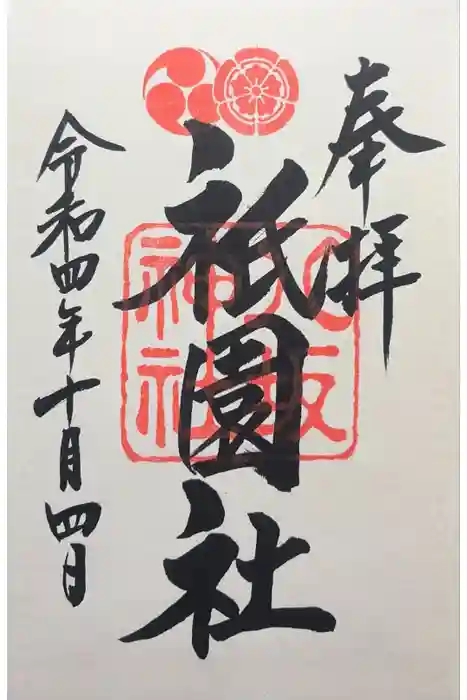 奉拝
祇園社
八坂
神社
令和四年十月四日